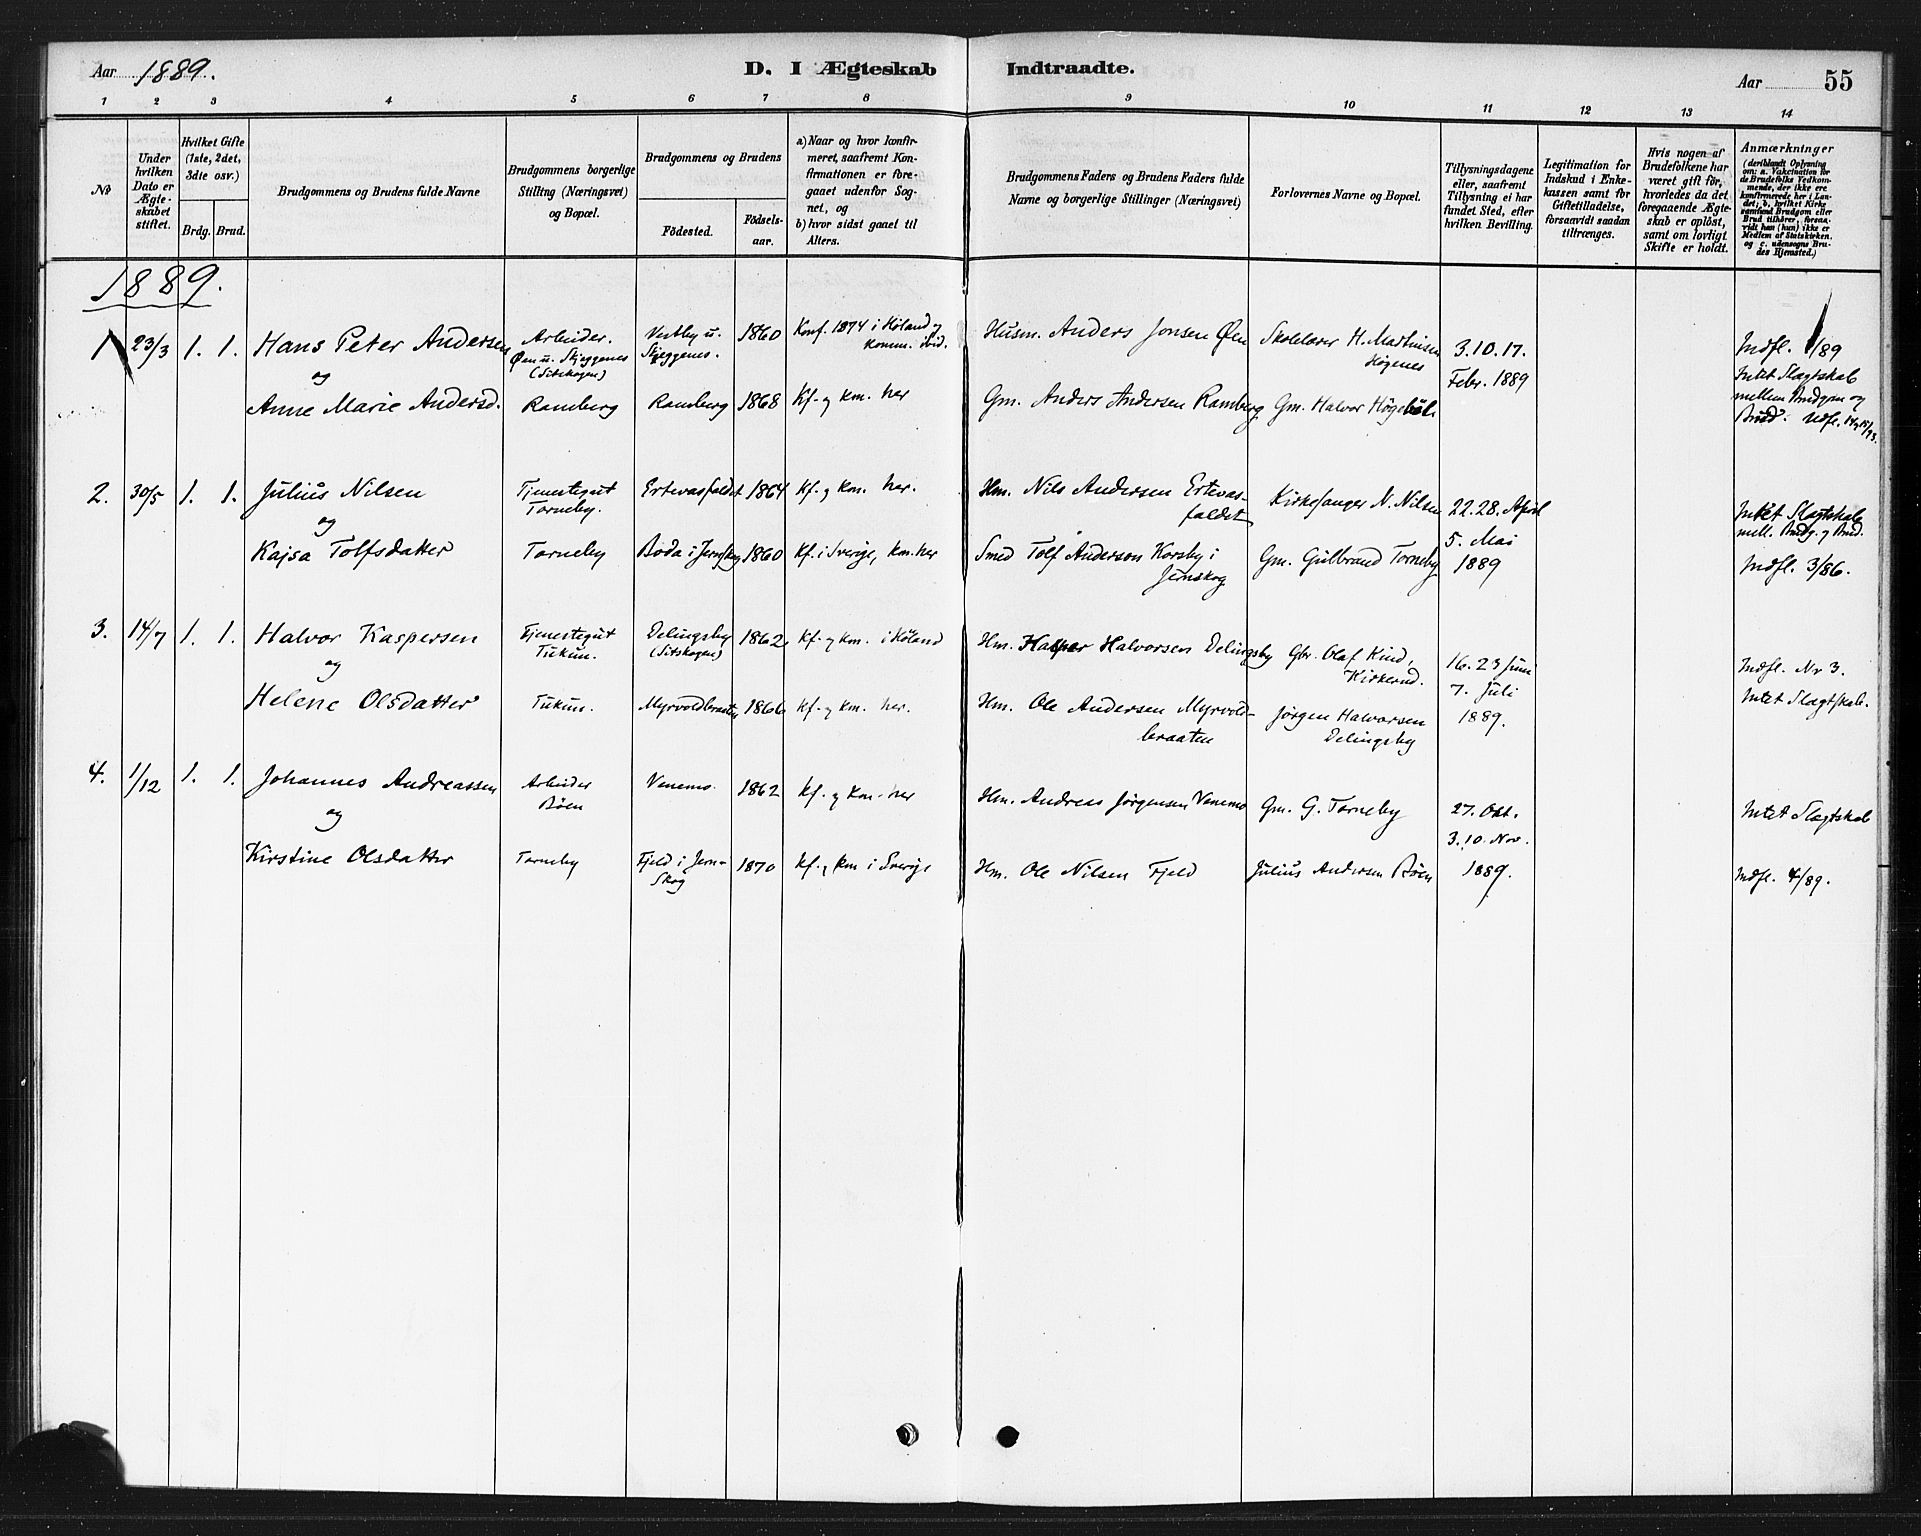 Aar 1889.
D. I Ægteskab Indtraadte.
Aar 55
1 2 3 4 5 6 7 8 9 10 11 12 13 14
No
Under hvilken Dato er Ægteskabet stiftet.
Hvilket Gifte (1ste, 2det, 3die osv.)
Brdg. Brud.
Brudgommens og Brudens fulde Navne
Brudgommens borgerlige Stilling (Næringsvei) og Bopæl.
Brudgommens og Brudens
Födested. Födsels-aar.
a) Naar og hvor konfirmeret, saafremt Konfirmationen er foregaaet udenfor Sognet, og
b) hvor sidst gaaet til Alters.
Brudgommens Faders og Brudens Faders fulde Navne og borgerlige Stillinger (Næringsvei)
Forlovernes Navne og Bopæl.
Tillysningsdagene eller, saafremt Tillysning ei har fundet Sted, efter hvilken Bevilling.
Legitimation for Indskud i Enkekassen samt for Giftetilladelse, forsaavidt saadan tiltrænges.
Hvis nogen af Brudefolkene har været gift før, hvorledes da det foregaaende Ægteskab er opløst, samt om lovligt Skifte er holdt.
Anmærkninger
(deriblandt Oplysning om: a. Vakcination for de Brudefolks Vedkommende, der ikke ere konfirmerede her i Landet; b. hvilket Kirkesamfund Brudgom eller Brud tilhører, forsaavidt han (hun) ikke er Medlem af Statskirken. og c. udensogns Brudes Hjemsted.)
1889.
1 23/3 1. 1. Hans Peter Andersen
og
Anne Marie Andersd.
Arbeider. Øen u. Skjeggenes (Sitskogen)
Ramberg
Vestby u. Skjeggenes. 1860
Ramberg 1868
Konf. 1874 i Höland og komm. ibid.
Kf- og km. her
Husm. Anders Jonsen Øen
Gm. Anders Andersen Ramberg
Skolelærer H. Mathisen Högenes
Gm. Halvor Högeböl
3. 10. 17. Febr. 1889
Indfl. 1/89
Intet Slagtskab mellem Brudgom og Brud.
2. 30/5 1. 1. Julius Nilsen
og
Kajsa Tolfsdatter
Tjenestegut Torneby.
Torneby
Ertevasfaldet 1864
Boda i Jernskog 1860
Kf- og km. her.
Kf. i Sverige, km. her
Hm. Nils Andersen Ertevasfaldet
Smed Tolf Anderson Korsby i Jernskog
Kirkesanger N. Nilsen
Gm. Gulbrand Torneby
22. 28. April 5. Mai 1889
Intet Slagtskab mell. Brudg. og Brud.
Indfl. 3/86.
3. 14/7 1. 1. Halvor Kaspersen
og
Helene Olsdatter
Tjenestegut Tukun.
Tukun.
Delingsby (Sitskogen) 1862
Myrvoldbraaten 1866
Kf- og km. i Höland
kf- og km. her.
Hm. Kasper Halvorsen Delingsby
Hm. Ole Andersen Myrvoldbraaten
Gbr. Olaf Kind, Kirkerud.
Jörgen Halvorsen Delingsby
16. 23 Juni 7. Juli 1889.
Indfl. Nr 3.
Intet Slagtskab.
4. 1/12 1. 1. Johannes Andreassen
og
Kirstine Olsdatter
Arbeider Böen
Torneby
Venemo. 1862
Fjeld i Jernskog 1870
kf- og km- her
kf- og km i Sverige
Hm. Andreas Jörgensen Venemo
Hm. Ole Nilsen Fjeld
Gm. G. Torneby
Julius Andersen Böen
27. Okt. 3. 10. Nov. 1889.
Intet Slagtskab
Indfl. 4/89.